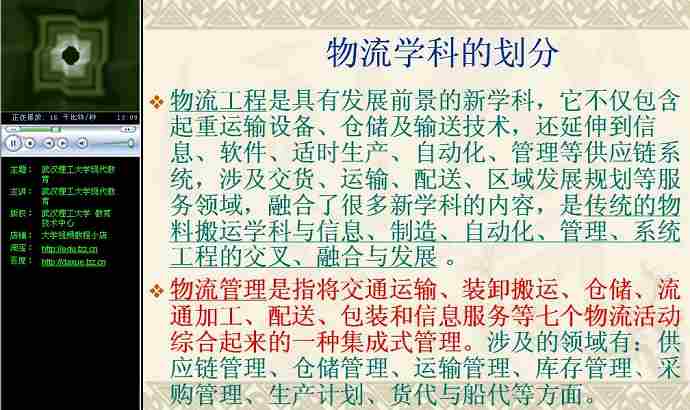 正在播放: 16 千比特/秒 13:09
主题: 武汉理工大学现代教
育
主讲: 武汉理工大学现代教
育
版权: 武汉理工大学 教育
技术中心
店铺: 大学视频教程小店
淘宝: http://edu.bz.cn
百度: http://daxue.bz.cn
物流学科的划分
物流工程是具有发展前景的新学科，它不仅包含
起重运输设备、仓储及输送技术，还延伸到信
息、软件、适时生产、自动化、管理等供应链系
统，涉及交货、运输、配送、区域发展规划等服
务领域，融合了很多新学科的内容，是传统的物
料搬运学科与信息、制造、自动化、管理、系统
工程的交叉、融合与发展 。
物流管理是指将交通运输、装卸搬运、仓储、流
通加工、配送、包装和信息服务等七个物流活动
综合起来的一种集成式管理。涉及的领域有：供
应链管理、仓储管理、运输管理、库存管理、采
购管理、生产计划、货代与船代等方面。